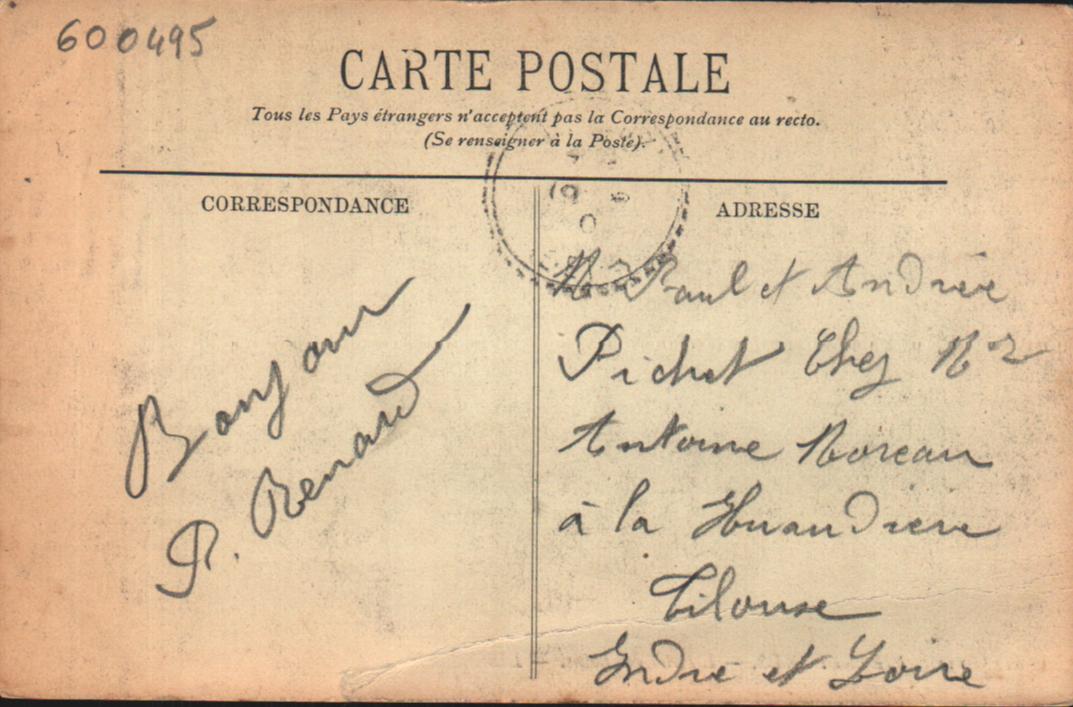 600495
CARTE POSTALE
Tous les Pays étrangers n'acceptent pas la Correspondance au recto.
(Se renseigner à la Poste).
CORRESPONDANCE
Bonjour
P. Renard
ADRESSE
Paul et Andrée
Pichet Chez Mr
Antoine Moreau
à la
Tilouse
Indre et Loire